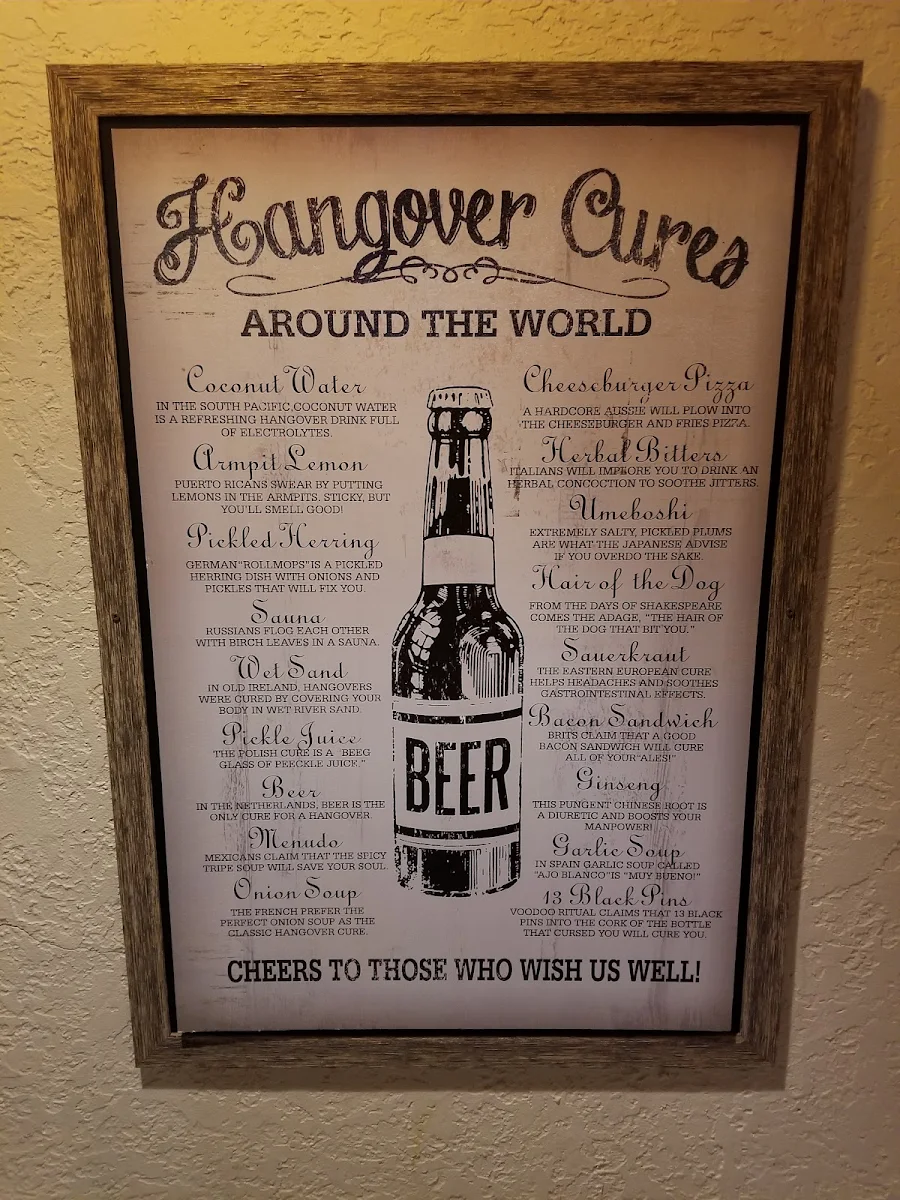 Hangover Cures
AROUND THE WORLD
Coconut Water
IN THE SOUTH PACIFIC, COCONUT WATER
IS A REFRESHING HANGOVER DRINK FULL
OF ELECTROLYTES.
Armpit Lemon
PUERTO RICANS SWEAR BY PUTTING
LEMONS IN THE ARMPITS. STICKY, BUT
YOU'LL SMELL GOOD!
Pickled Herring
GERMAN "ROLLMOPS" IS A PICKLED
HERRING DISH WITH ONIONS AND
PICKLES THAT WILL FIX YOU.
Sauna
RUSSIANS FLOG EACH OTHER
WITH BIRCH LEAVES IN A SAUNA.
Wet Sand
IN OLD IRELAND, HANGOVERS
WERE CURED BY COVERING YOUR
BODY IN WET RIVER SAND.
Pickle Juice
THE POLISH CURE IS A "BEEG
GLASS OF PEECKLE JUICE."
Beer
IN THE NETHERLANDS, BEER IS THE
ONLY CURE FOR A HANGOVER.
Menudo
MEXICANS CLAIM THAT THE SPICY
TRIPE SOUP WILL SAVE YOUR SOUL.
Onion Soup
THE FRENCH PREFER THE
PERFECT ONION SOUP AS THE
CLASSIC HANGOVER CURE.
BEER
Cheeseburger Pizza
A HARDCORE AUSSIE WILL PLOW INTO
THE CHEESEBURGER AND FRIES PIZZA.
Herbal Bitters
ITALIANS WILL IMPLORE YOU TO DRINK AN
HERBAL CONCOCTION TO SOOTHE JITTERS.
Umeboshi
EXTREMELY SALTY, PICKLED PLUMS
ARE WHAT THE JAPANESE ADVISE
IF YOU OVERDO THE SAKE.
Hair of the Dog
FROM THE DAYS OF SHAKESPEARE
COMES THE ADAGE, "THE HAIR OF
THE DOG THAT BIT YOU."
Sauerkraut
THE EASTERN EUROPEAN CURE
HELPS HEADACHES AND SOOTHES
GASTROINTESTINAL EFFECTS.
Bacon Sandwich
BRITS CLAIM THAT A GOOD
BACON SANDWICH WILL CURE
ALL OF YOUR "ALES!"
Ginseng
THIS PUNGENT CHINESE ROOT IS
A DIURETIC AND BOOSTS YOUR
MANPOWER!
Garlic Soup
IN SPAIN GARLIC SOUP CALLED
"AJO BLANCO" IS "MUY BUENO!"
13 Black Pins
VOODOO RITUAL CLAIMS THAT 13 BLACK
PINS INTO THE CORK OF THE BOTTLE
THAT CURSED YOU WILL CURE YOU.
CHEERS TO THOSE WHO WISH US WELL!